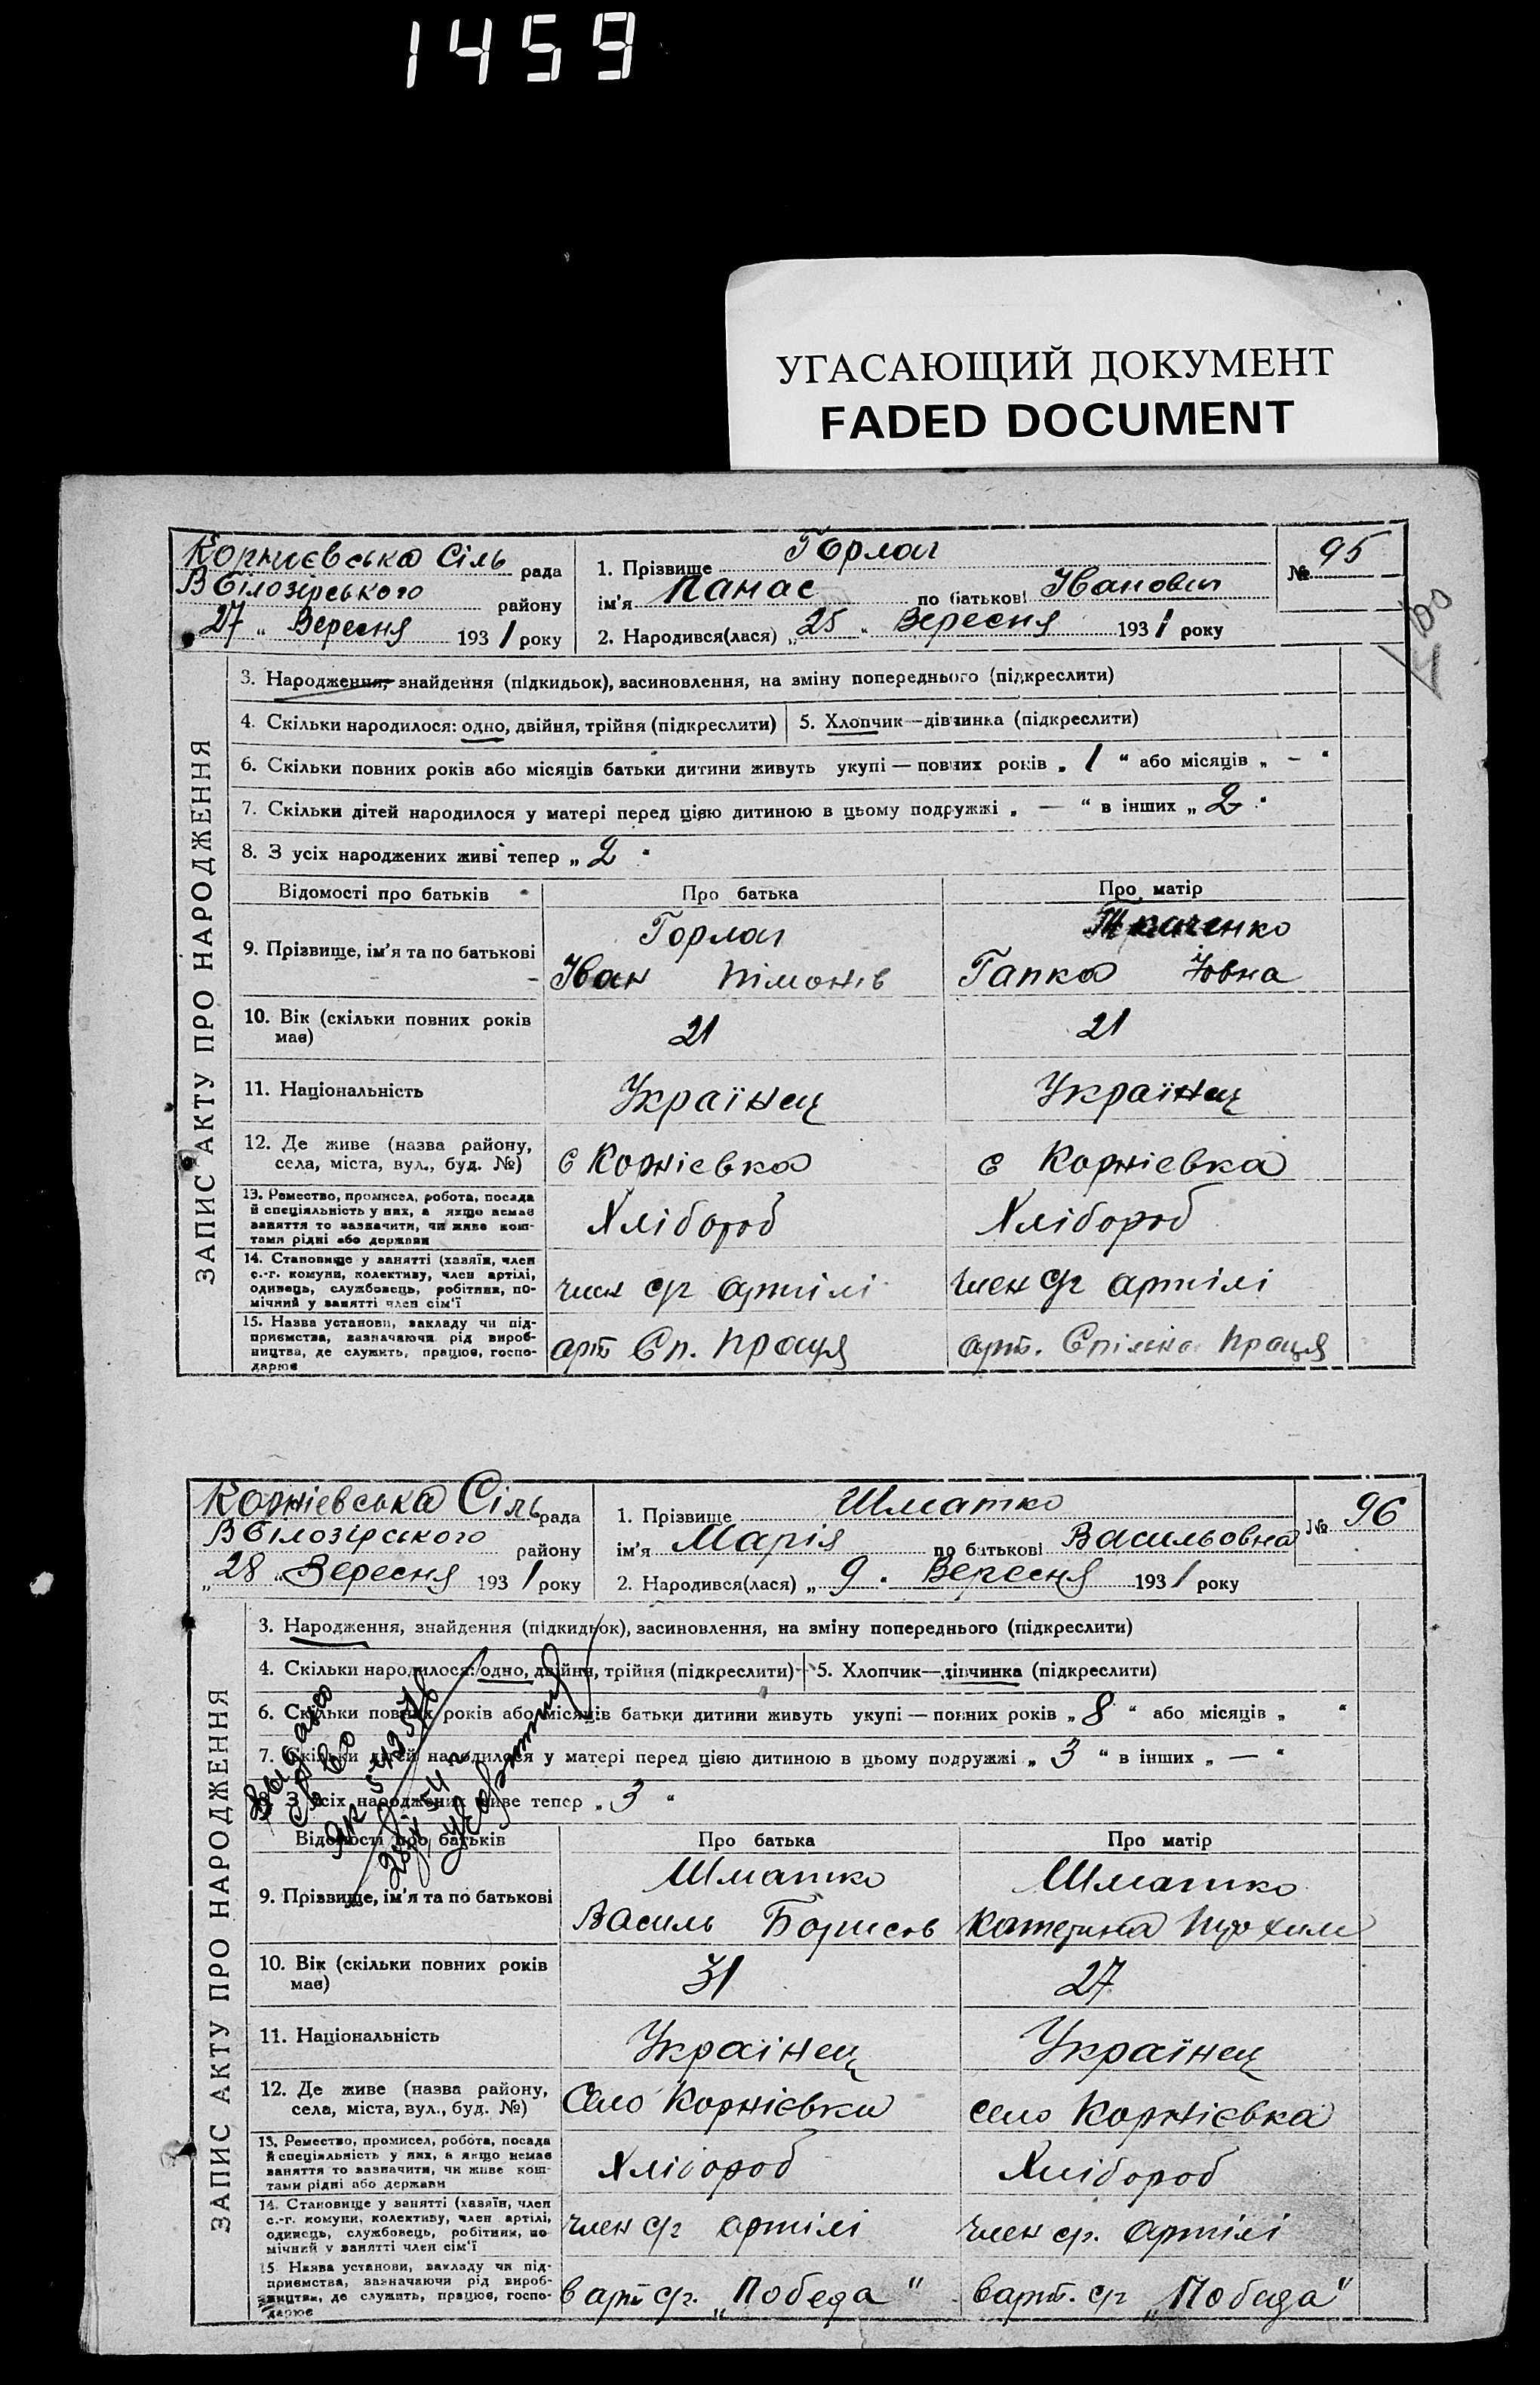 1459
УГАСАЮЩИЙ ДОКУМЕНТ
FADED DOCUMENT
Корниевська Сіль рада
ВБілозірського району
27 " Вересня 1931 року
1. Прізвище Горлач
ім'я Панас по батькові Іванович
2. Народився(лася) „25" Вересня 1931 року
№ 95
100
ЗАПИС АКТУ ПРО НАРОДЖЕННЯ
3. Народження, знайдення (підкидьок), васиновлення, на зміну попереднього (підкреслити)
4. Скільки народилося: одно, двійня, трійня (підкреслити) 5. Хлопчик—дівчинка (підкреслити)
6. Скільки повних років або місяців батьки дитини живуть укупі — повних років „ 1 " або місяців „ – "
7. Скільки дітей народилося у матері перед цією дитиною в цьому подружжі „ — " в інших „ 2 "
8. З усіх народжених живі тепер „ 2 "
Відомості про батьків Про батька Про матір
9. Прізвище, ім'я та по батькові
Горлач Ткаченко
Іван Пімонів Гапка Іовна
10. Вік (скільки повних років має) 21 21
11. Національність Українец Українец
12. Де живе (назва району,
села, міста, вул., буд. №) с Корніевка с Корніевка
13. Ремество, промисел, робота, посада
й спеціяльність у них, а якщо немає
заняття то зазначити, чи живе кош-
тами рідні або держави
Хлібороб Хлібороб
14. Становище у занятті (хазяїн, член
с.-г. комуни, колективу, член артілі,
одинець, службовець, робітник, по-
мічний у занятті член сім'ї
член сг артілі член сг артілі
15. Назва установи, закладу чи під-
приємства, зазначаючи рід вироб-
ництва, де служить, працює, госпо-
дарює
арт Сп. Праця арт. Спілна Праця
Корніевська Сіль рада
ВБілозірського району
„28" Вересня 1931 року
1. Прізвище Шматко
ім'я Марія по батькові Васильовна
2. Народився(лася) „ 9 " Вересня 1931 року
№ 96
ЗАПИС АКТУ ПРО НАРОДЖЕННЯ
3. Народження, знайдення (підкидьок), засиновлення, на зміну попереднього (підкреслити)
4. Скільки народилося: одно, двійня, трійня (підкреслити) 5. Хлопчик—дівчинка (підкреслити)
6. Скільки повних років або місяців батьки дитини живуть укупі — повних років „ 8 " або місяців „ "
7. Скільки дітей народилося у матері перед цією дитиною в цьому подружжі „ 3 " в інших „ — "
8. З усіх народжених живе тепер „ 3 "
Відомості про батьків Про батька Про матір
9. Прізвище, ім'я та по батькові
Шматко Шматко
Василь Борисов Катерина Трохим
10. Вік (скільки повних років має) 31 27
11. Національність Українец Українец
12. Де живе (назва району,
села, міста, вул., буд. №) Село Корнієвка село Корнієвка
13. Ремество, промисел, робота, посада
й спеціяльність у них, а якщо немає
заняття то зазначити, чи живе кош-
тами рідні або держави
Хлібороб Хлібороб
14. Становище у занятті (хазяїн, член
с.-г. комуни, колективу, член артілі,
одинець, службовець, робітник, по
мічний у занятті член сім'ї
член сг артілі член сг. артілі
15. Назва установи, закладу чи під-
приємства, зазначаючи рід вироб-
ництва, де служить, працює, госпо-
дарює
в арт сг. „Победа" в арт. сг „Победа"